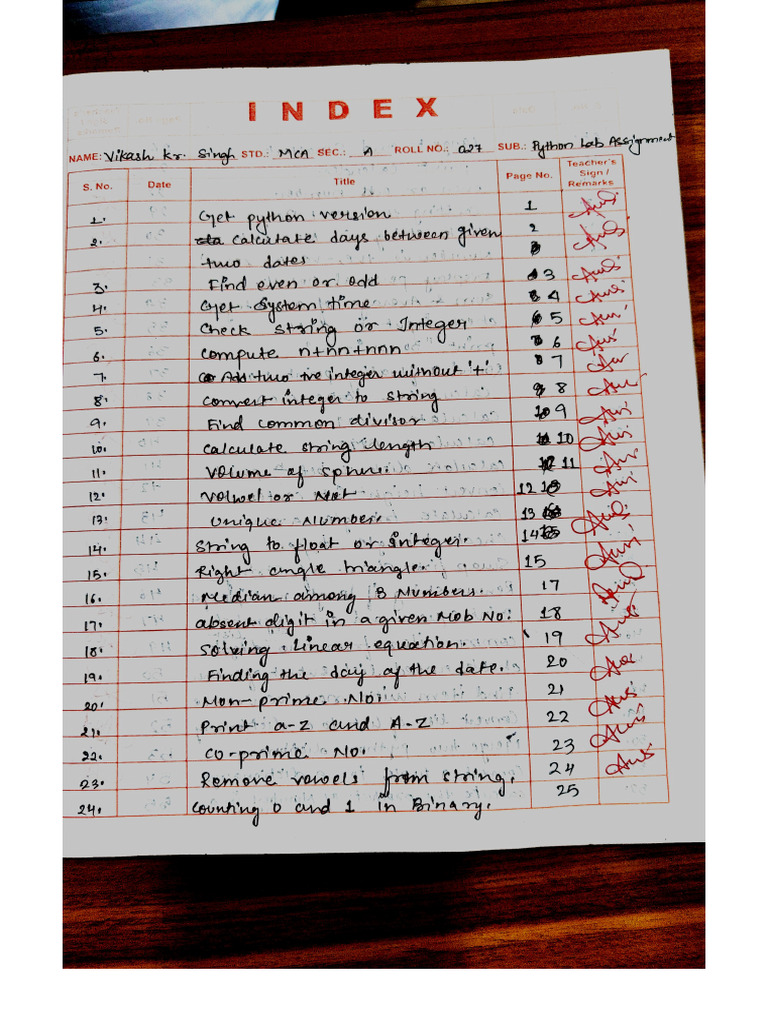 INDEX
NAME: Vikash Kr. Singh STD.: MCA SEC.: A ROLL NO.: 027 SUB.: Python Lab Assignment
S. No. Date Title Page No. Teacher's Sign / Remarks
1. Get python version 1
2. Calculate days between given 2
two dates
3. Find even or odd 3
4. Get System time 4
5. Check String or Integer 5
6. Compute n+nn+nnn 6
7. Add two +ve integer without '+' 7
8. Convert integer to string 8
9. Find common divisor. 9
10. Calculate string length 10
11. Volume of sphere. 11
12. Volwel or Not 12
13. Unique Number. 13
14. String to float or integer. 14
15. Right angle triangle. 15
16. Median among 3 Numbers. 17
17. absent digit in a given Mob No: 18
18. Solving Linear equation. 19
19. Finding the day of the date. 20
20. Non-prime No: 21
21. Print a-z and A-Z 22
22. CO-prime No. 23
23. Remove vowels from string. 24
24. Counting 0 and 1 in Binary. 25